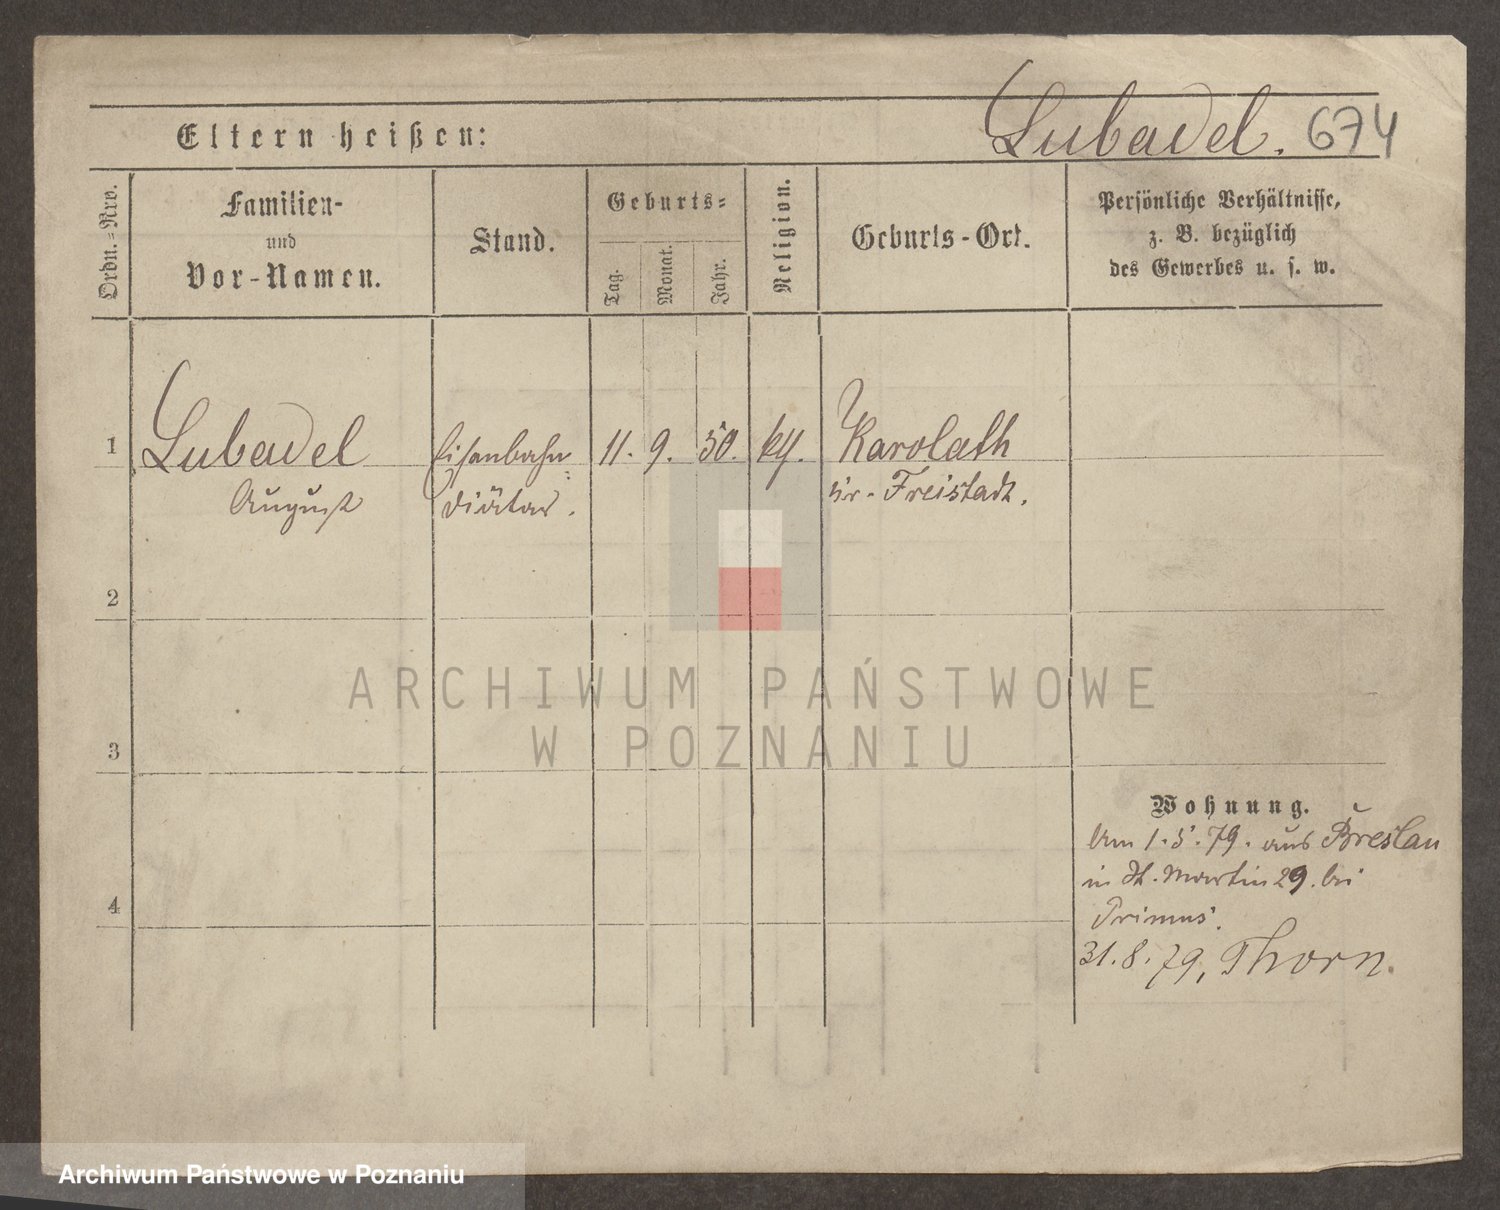 Eltern heißen:
Lubadel. 674
Ordn.=Nro.
Familien-
und
Vor-Namen.
Stand.
Geburts=
Tag.
Monat.
Jahr.
Religion.
Geburts-Ort.
Persönliche Verhältnisse,
z. B. bezüglich
des Gewerbes u. s. w.
1 Lubadel Eisenbahn 11. 9. 50. Karolath
August diätar. Kr. Freistadt.
2
3
4
Wohnung.
Am 1.5.79. aus Breslau
in St. Martin 29. bei
Primus.
31.8.79, Thorn.
ARCHIWUM PAŃSTWOWE
W POZNANIU
Archiwum Państwowe w Poznaniu